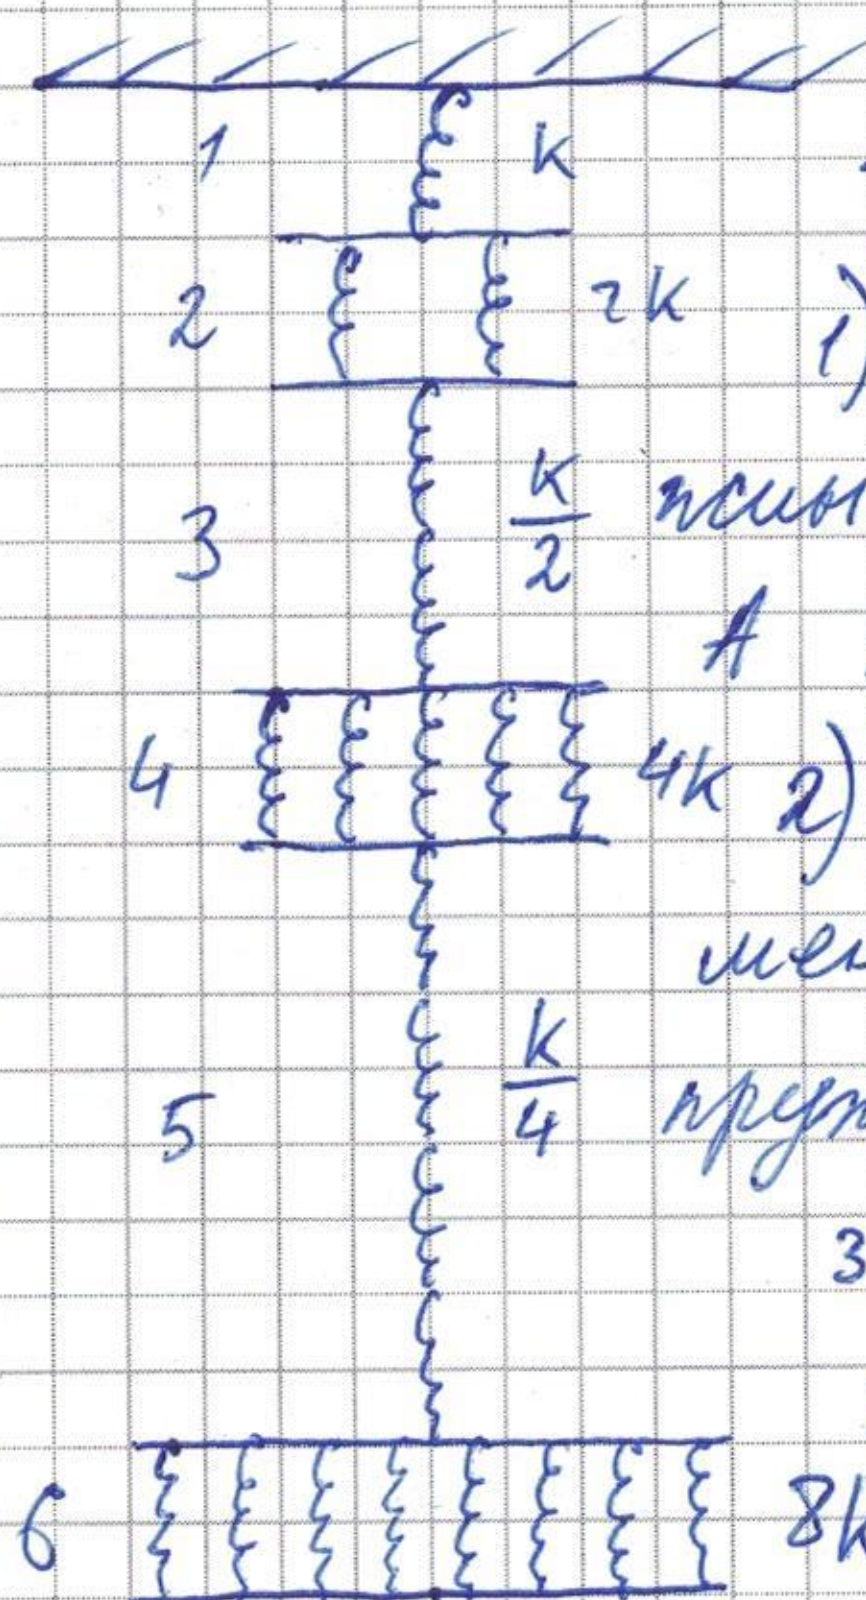 1 K
2 2K 1)
3 K/2
A
4 4K 2)
5 K/4
3
6 8K